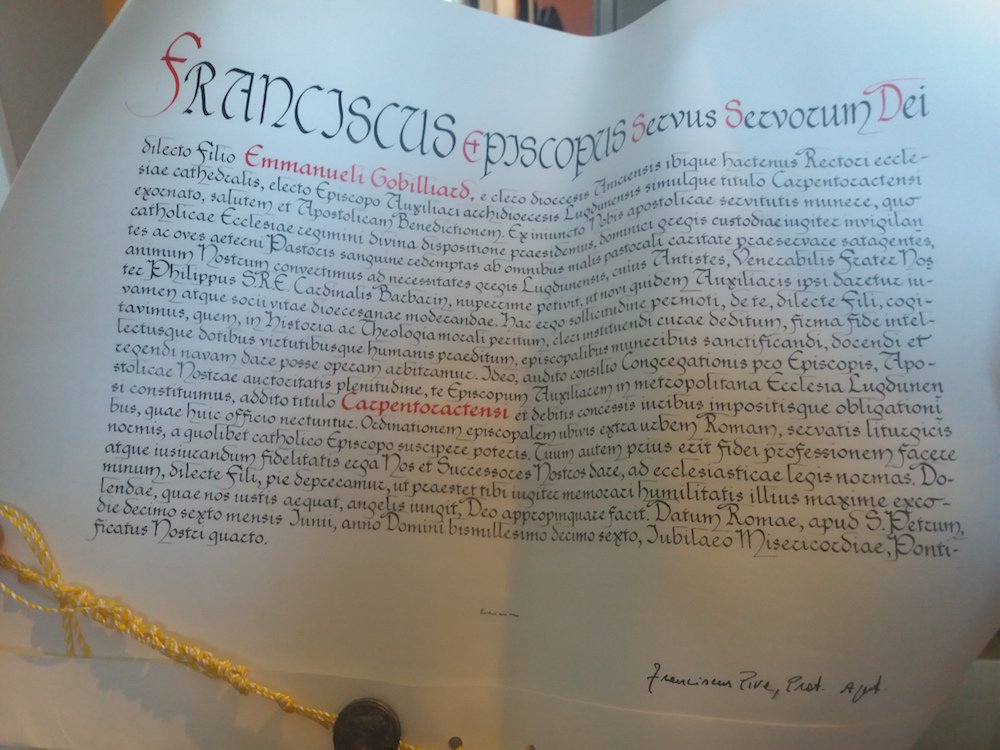 FRANCISCUS EPISCOPUS Servus Servorum Dei
dilecto Filio Emmanueli Gobilliard, e clero dioecesis Aniciensis ibique hactenus Rectori eccle-
siae cathedralis, electo Episcopo Auxiliari archidioecesis Lugdunensis simulque titulo Carpentoractensi
exornato, salutem et Apostolicam Benedictionem. Ex iniuncto Nobis apostolicae servitutis munere, quo
catholicae Ecclesiae regimini divina dispositione praesidemus, dominici gregis custodiae iugiter invigilan
tes ac oves aeterni Pastoris sanguine redemptas ab omnibus malis pastorali caritate praeservare satagentes,
animum Nostrum convertimus ad necessitates gregis Lugdunensis, cuius Antistes, Venerabilis Frater Nos
ter Philippus S.R.E. Cardinalis Barbarin, nuperrime petivit, ut novi quidem Auxiliaris ipsi daretur iu-
vamen atque socii vitae dioecesanae moderandae. Hac ergo sollicitudine permoti, de te, dilecte Fili, cogi-
tavimus, quem, in Historia ac Theologia morali peritum, cleri instituendi curae deditum, firma fide intel-
lectusque dotibus virtutibusque humanis praeditum, episcopalibus muneribus sanctificandi, docendi et
regendi navam dare posse operam arbitramur. Ideo, audito consilio Congregationis pro Episcopis, Apo-
stolicae Nostrae auctoritatis plenitudine, te Episcopum Auxiliarem in metropolitana Ecclesia Lugdunen
si constituimus, addito titulo Carpentoractensi et debitis concessis iuribus impositisque obligationi
bus, quae huic officio nectuntur. Ordinationem episcopalem ubivis extra urbem Romam, servatis liturgicis
normis, a quolibet catholico Episcopo suscipere poteris. Tuum autem prius erit fidei professionem facere
atque iusiurandum fidelitatis erga Nos et Successores Nostros dare, ad ecclesiasticae legis normas. Do-
minum, dilecte Fili, pie deprecamur, ut praestet tibi iugiter memorari humilitatis illius maxime exco-
lendae, quae nos iustis aequat, angelis iungit, Deo appropinquare facit. Datum Romae, apud S. Petrum,
die decimo sexto mensis Iunii, anno Domini bismillesimo decimo sexto, Iubilaeo Misericordiae, Ponti-
ficatus Nostri quarto.
Franciscus Piva, Prot. Apost.